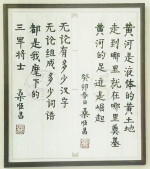 黄河是液体的黄土地
走到哪里就在哪里奠基
黄河的足迹是崛起
癸卯
桑恒昌
无论有多少汉字
无论组成多少词语
都是我麾下的
三军将士
桑恒昌